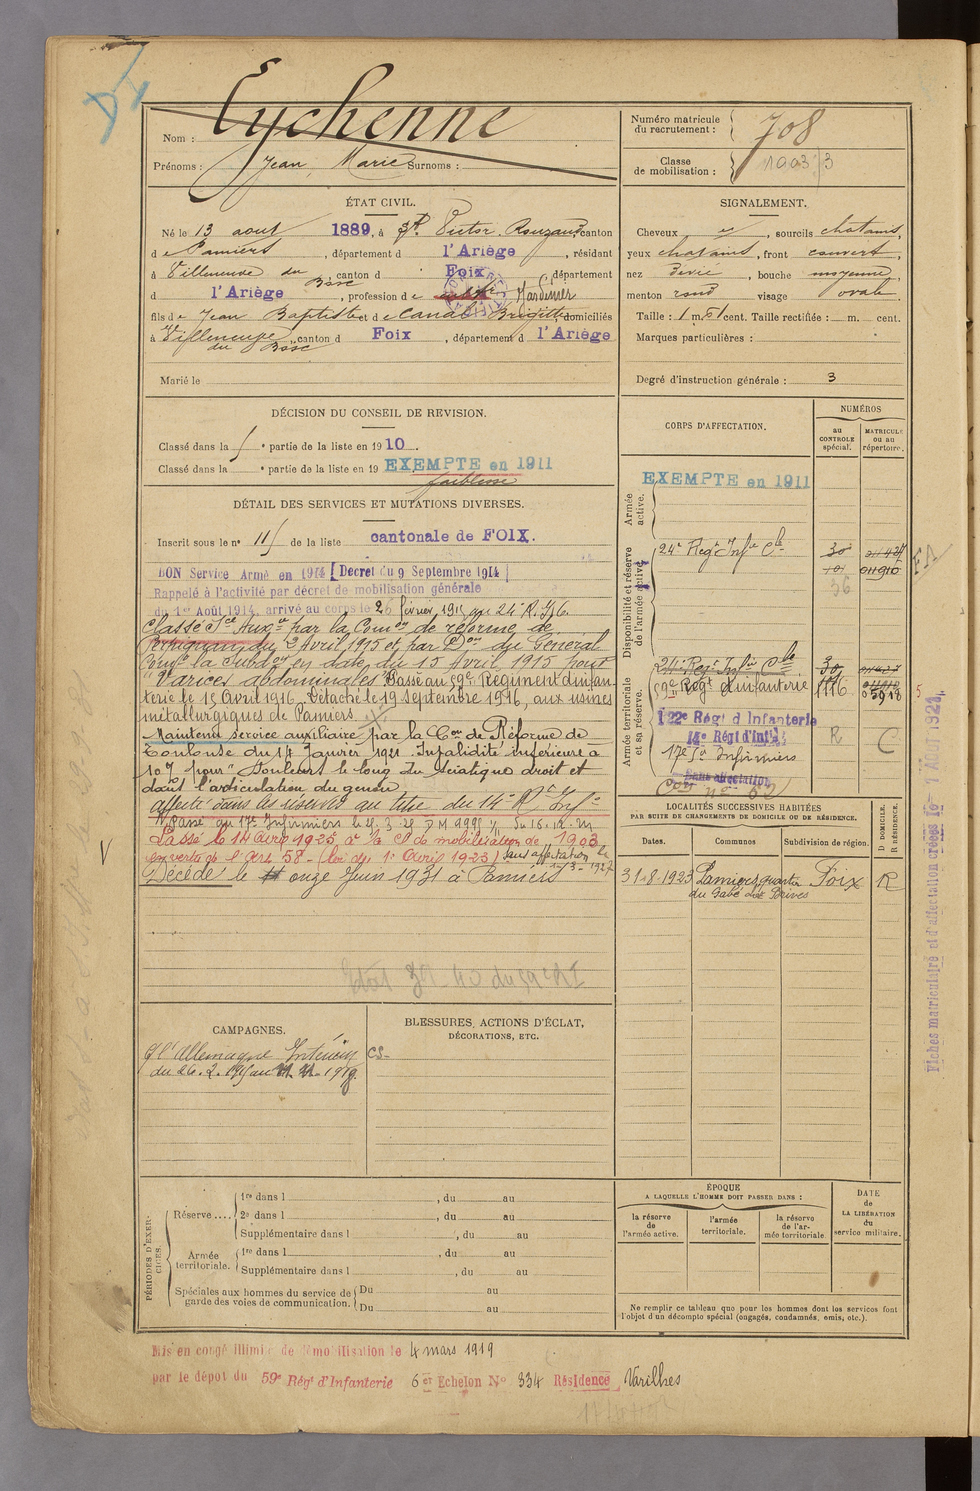 Nom : Eychenne
Prénoms : Jean Marie Surnoms :
Numéro matricule
du recrutement : 708
Classe
de mobilisation : 1903
ÉTAT CIVIL.
Né le 13 aout 1889, à St Victor Rouzaud, canton
de Pamiers, département d l'Ariège, résidant
à Villeneuve du Bosc, canton d Foix, département
d l'Ariège, profession de Jardinier
fils de Jean Baptiste et de Canal Brigitte domiciliés
à Villeneuve du Bosc, canton d Foix, département d l'Ariège
Marié le
SIGNALEMENT.
Cheveux et, sourcils chatains,
yeux chatains, front couvert,
nez dévié, bouche moyenne,
menton rond visage ovale
Taille : 1 m. 51 cent. Taille rectifiée : m. cent.
Marques particulières :
Degré d'instruction générale : 3
DÉCISION DU CONSEIL DE REVISION.
Classé dans la e partie de la liste en 1910.
Classé dans la e partie de la liste en 19 EXEMPTE en 1911
faiblesse
DÉTAIL DES SERVICES ET MUTATIONS DIVERSES.
Inscrit sous le no 11 de la liste cantonale de FOIX.
BON Service Armé en 1914 [Décret du 9 Septembre 1914]
Rappelé à l'activité par décret de mobilisation générale
du 1er Août 1914, arrivé au corps le 26 février 1915 au 24e R. I.
Classé Sce Auxre par la Comon de réforme de
Perpignan du 2 Avril 1915 et par Don du Général
Comt la Subdon en date du 15 Avril 1915 pour
"Varices abdominales" Passé au 59e Régiment d'infan-
terie le 15 Avril 1916. Détaché le 19 Septembre 1916, aux usines
métallurgiques de Pamiers.
Maintenu service auxiliaire par la Con de Réforme de
Toulouse du 14 Janvier 1921. Invalidité inférieure à
10% pour "Douleurs le long du sciatique droit et
dans l'articulation du genou
affecté dans les réserves au titre du 14e R. Infie
Passé au 17e Infirmiers le
Passé le 14 Avril 1925 à la Cl de mobilisation de 1903
en vertu de l'Art 58 - (loi du 1er Avril 1923) sans affectation le
Décédé le onze Juin 1931 à Pamiers
CORPS D'AFFECTATION.
NUMÉROS
au
CONTROLE
spécial.
MATRICULE
ou au
répertoire.
Armée
active.
EXEMPTE en 1911
Disponibilité et réserve
de l'armée active.
24e Régt Infie Cle 30
36
Armée territoriale
et sa réserve.
24e Régt Infie Cle 30
59e Régt d'infanterie 1116
122e Régt d Infanterie
14e Régt d'Infie R C
17e Son Infirmiers
Sans affectation
LOCALITÉS SUCCESSIVES HABITÉES
PAR SUITE DE CHANGEMENTS DE DOMICILE OU DE RÉSIDENCE.
Dates. Communes Subdivision de région. D DOMICILE. R RÉSIDENCE.
31-8-1923 Pamiers, quartier Foix R
CAMPAGNES.
C l'Allemagne Intérieur CS
du 26.2.1915 au
BLESSURES, ACTIONS D'ÉCLAT,
DÉCORATIONS, ETC.
PÉRIODES D'EXER-
CICES.
Réserve .... 1re dans l , du au
2e dans l , du au
Supplémentaire dans l , du au
Armée
territoriale. 1re dans l , du au
Supplémentaire dans l , du au
Spéciales aux hommes du service de
garde des voies de communication. Du au
Du au
ÉPOQUE
A LAQUELLE L'HOMME DOIT PASSER DANS :
la réserve
de
l'armée active.
l'armée
territoriale.
la réserve
de l'ar-
mée territoriale
DATE
de
LA LIBÉRATION
du
service militaire.
Ne remplir ce tableau que pour les hommes dont les services font
l'objet d'un décompte spécial (engagés, condamnés, omis, etc.).
Mis en congé illimité de démobilisation le 4 mars 1919
par le dépot du 59e Régt d'Infanterie 6er Echelon No 334 Résidence Varilhes
Fiches matriculaire et d'affectation créées le 1 AOUT 1921